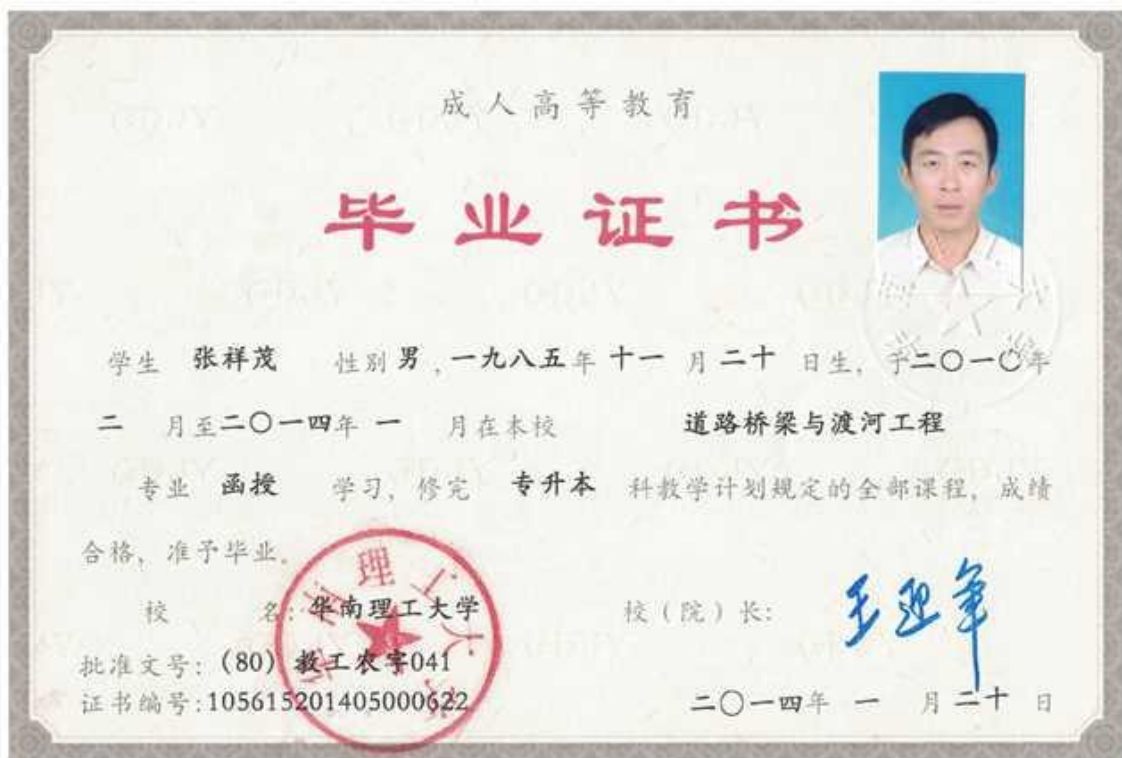 成人高等教育
毕业证书
学生 张祥茂 性别 男 , 一九八五 年 十一 月 二十 日生, 于 二〇一〇 年
二 月至 二〇一四 年 一 月在本校 道路桥梁与渡河工程
专业 函授 学习, 修完 专升本 科教学计划规定的全部课程, 成绩
合格, 准予毕业。
校 名: 华南理工大学 校(院)长: 王迎军
批准文号: (80) 教工农字041
证书编号: 105615201405000622 二〇一四 年 一 月 二十 日
华南理工大学